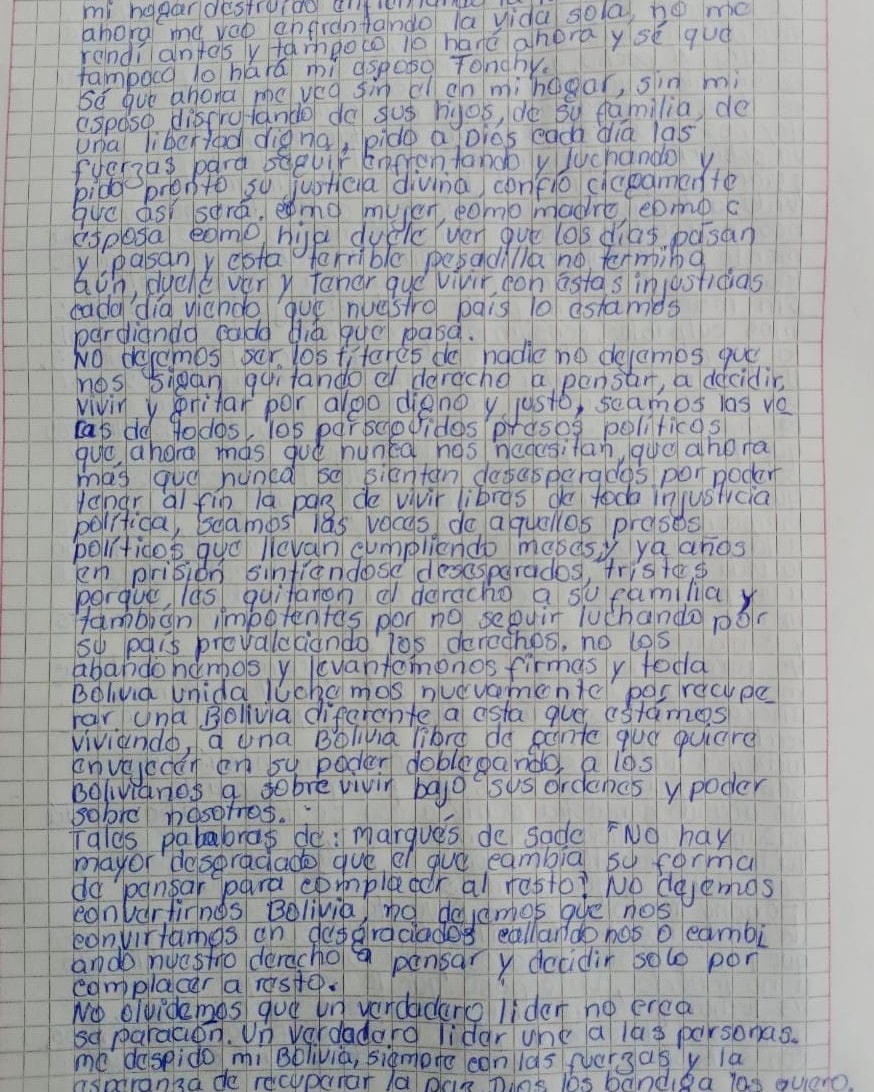 mi hogar destruido enfrentando la
ahora me veo enfrentando la vida sola, no me
rendí antes y tampoco lo haré ahora y sé que
tampoco lo hará mi esposo Fonchy.
Sé que ahora me veo sin el en mi hogar, sin mi
esposo disfrutando de sus hijos, de su familia, de
una libertad digna, pido a Dios cada día las
fuerzas para seguir enfrentando y luchando y
pido pronto su justicia divina, confío ciegamente
que así será, como mujer, como madre, como c
esposa como hija duele ver que los días pasan
y pasan y esta terrible pesadilla no termina
aún, duele ver y tener que vivir con estas injusticias
cada día viendo que nuestro país lo estamos
perdiendo cada día que pasa.
No dejemos ser los títeres de nadie no dejemos que
nos sigan quitando el derecho a pensar, a decidir,
vivir y gritar por algo digno y justo, seamos las vo
ces de todos, los perseguidos presos políticos
que ahora más que nunca nos necesitan, que ahora
más que nunca se sienten desesperados por poder
tener al fin la paz de vivir libres de toda injusticia
política, seamos las voces de aquellos presos
políticos que llevan cumpliendo meses y ya años
en prisión sintiendose desesperados, tristes
porque les quitaron el derecho a su familia y
también impotentes por no seguir luchando por
su país prevaleciendo los derechos, no los
abandonemos y levantemonos firmes y toda
Bolivia unida luchemos nuevamente por recupe
rar una Bolivia diferente a esta que estámos
viviendo, a una Bolivia libre de gente que quiere
envejecer en su poder doblegando a los
Bolivianos a sobrevivir bajo sus ordenes y poder
sobre nosotros.
Tales pababras de: marqués de sade "No hay
mayor desgraciado que el que cambia su forma
de pensar para complacer al resto". No dejemos
convertirnos Bolivia, no dejemos que nos
convirtamos en desgraciados callandonos o cambi
ando nuestro derecho a pensar y decidir solo por
complacer a resto.
No olvidemos que un verdadero lider no crea
separación. Un verdadero lider une a las personas.
me despido mi Bolivia, siempre con las fuerzas y la
esperanza de recuperar la paz. Dios los bendiga los quiero